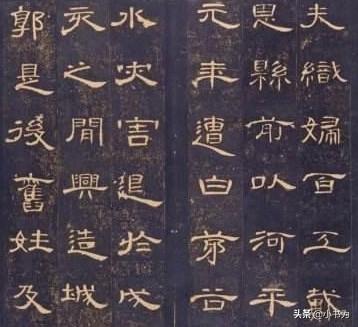 夫織婦百工戴
恩縣前以河平
元年遭白茅谷
水灾害退於戌
亥之間興造城
郭是後舊姓及
头条